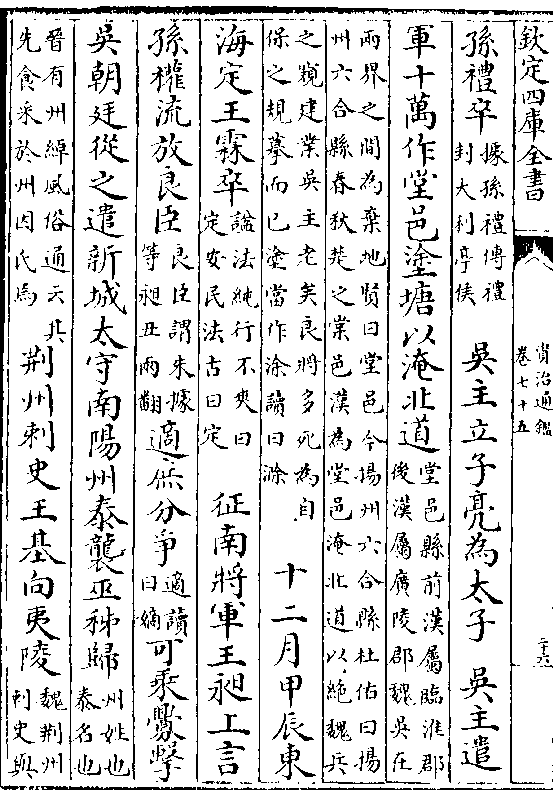 欽定四庫全書
資治通鑑
卷七十五
二十六
孫禮卒據孫禮傳禮封大利亭侯 吳主立子亮為太子 吳主遣
軍十萬作堂邑塗塘以淹北道堂邑縣前漢屬臨淮郡後漢屬廣陵郡魏吳在
兩界之間為棄地賢曰堂邑今揚州六合縣杜佑曰揚州六合縣春秋楚之棠邑漢為堂邑淹北道以絶魏兵
之窺建業吳主老矣良將多死為自保之規摹而已塗當作涂讀曰滁 十二月甲辰東
海定王霖卒諡法純行不爽曰定安民法古曰定 征南將軍王昶上言
孫權流放良臣良臣謂朱據等昶丑兩翻適庶分爭適讀曰嫡可乘釁擊
吳朝廷從之遣新城太守南陽州泰襲巫秭歸州姓也泰名也
晉有州綽風俗通云其先食采於州因氏焉荆州刺史王基向夷陵魏荆州刺史與